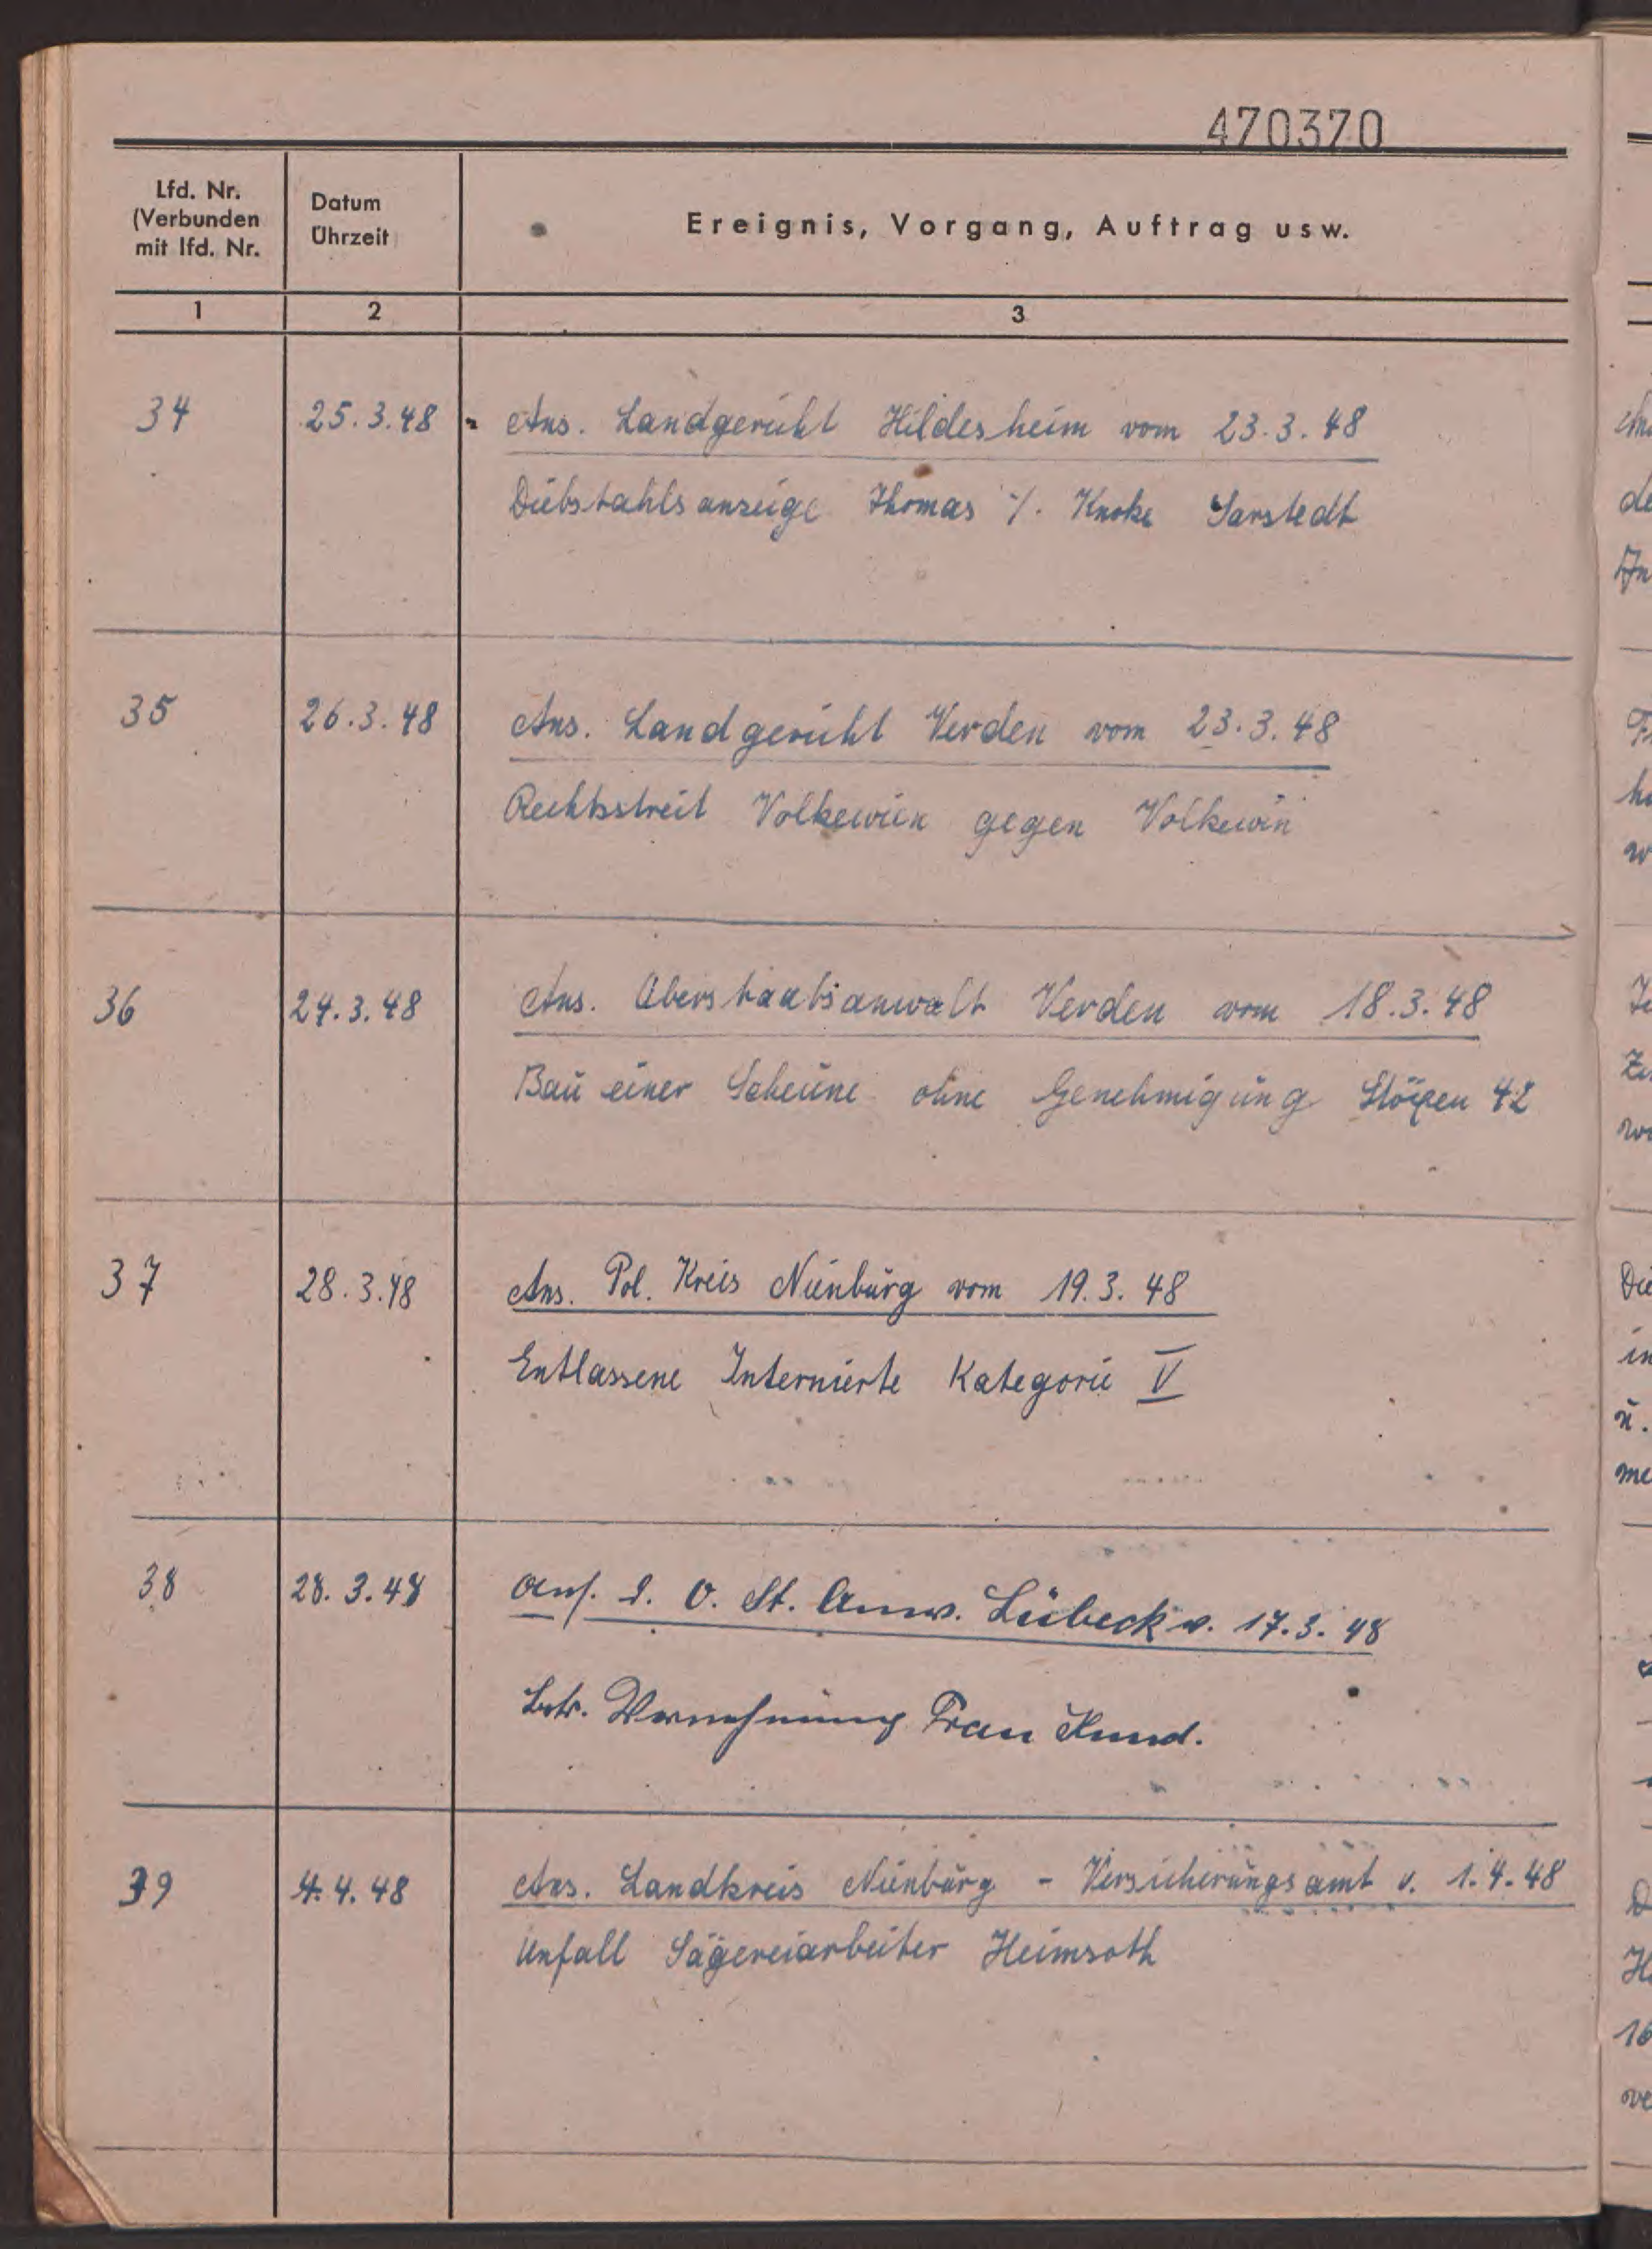 470370
Lfd. Nr.
(Verbunden
mit lfd. Nr.
Datum
Uhrzeit
Ereignis, Vorgang, Auftrag usw.
1 2 3
34 25.3.48 Ans. Landgericht Hildesheim vom 23.3.48
Diebstahlsanzeige Thomas ./. Knoke Sarstedt
35 26.3.48 Ans. Landgericht Verden vom 23.3.48
Rechtsstreit Volkewien gegen Volkewin
36 24.3.48 Ans. Oberstaatsanwalt Verden vom 18.3.48
Bau einer Scheune ohne Genehmigung 42
37 28.3.48 Ans. Pol. Kreis Nienburg vom 19.3.48
Entlassene Internierte Kategorie V
38 28.3.48 Ans. d. O. St. Anw. Lübeck v. 17.3.48
betr. Vernehmung Frau
39 4.4.48 Ans. Landkreis Nienburg - Versicherungsamt v. 1.4.48
Unfall Sägereiarbeiter Heimsoth